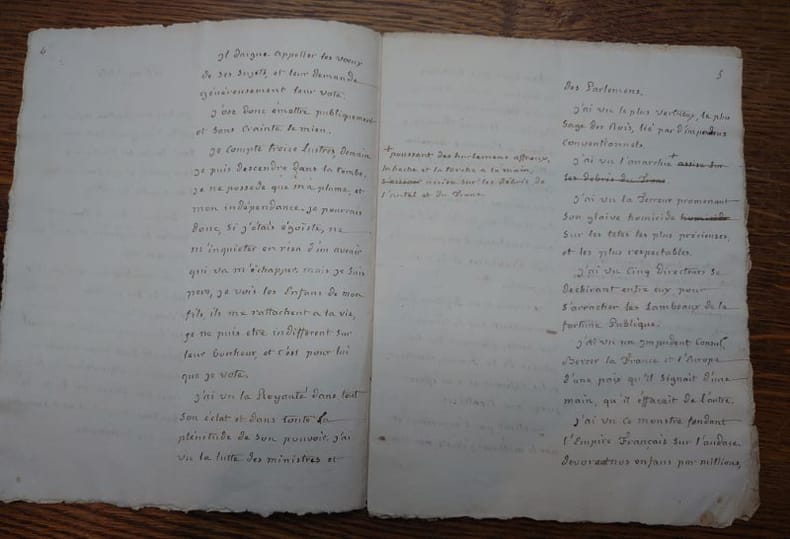 4
Il daigne appeller les vœux
de ses sujets, et leur demande
généreusement leur vote.
J'ose donc émettre publiquement
et sans crainte le mien.
Je compte treize Lustres, demain
je puis descendre dans la tombe,
je ne possede que ma plume, et
mon indépendance. je pourrais
donc, si j'étais égoïste, ne
m'inquieter en rien d'un avenir
qui va m'échapper, mais je suis
pere, je vois les Enfans de mon
fils, ils me rattachent a la vie,
je ne puis etre indifferent sur
leur bonheur, et c'est pour lui
que je vote.
J'ai vu la Royauté dans tout
son éclat et dans toute la
plénitude de son pouvoir. j'ai
vu la lutte des ministres et
5
des Parlemens.
J'ai vu le plus vertueux, le plus
sage des Rois, lié par d'impudens
conventionnels.
J'ai vu l'anarchie + assise sur
les débris du Trone.
+ poussant des hurlemens affreux,
la hache et la torche a la main,
assise sur les débris de
l'autel et du Trone.
J'ai vu la Terreur promenant
son glaive homicide homicide
sur les tetes les plus précieuses,
et les plus respectables.
J'ai vu Cinq Directeurs se
dechirant entre eux pour
s'arracher les Lambeaux de la
fortune Publique.
J'ai vu un Impudent Consul,
Bercer la France et l'Europe
d'une paix qu'il signait d'une
main, qu'il effacait de l'autre.
J'ai vu ce monstre fondant
l'Empire Français sur l'audace,
devorant nos enfans par millions,